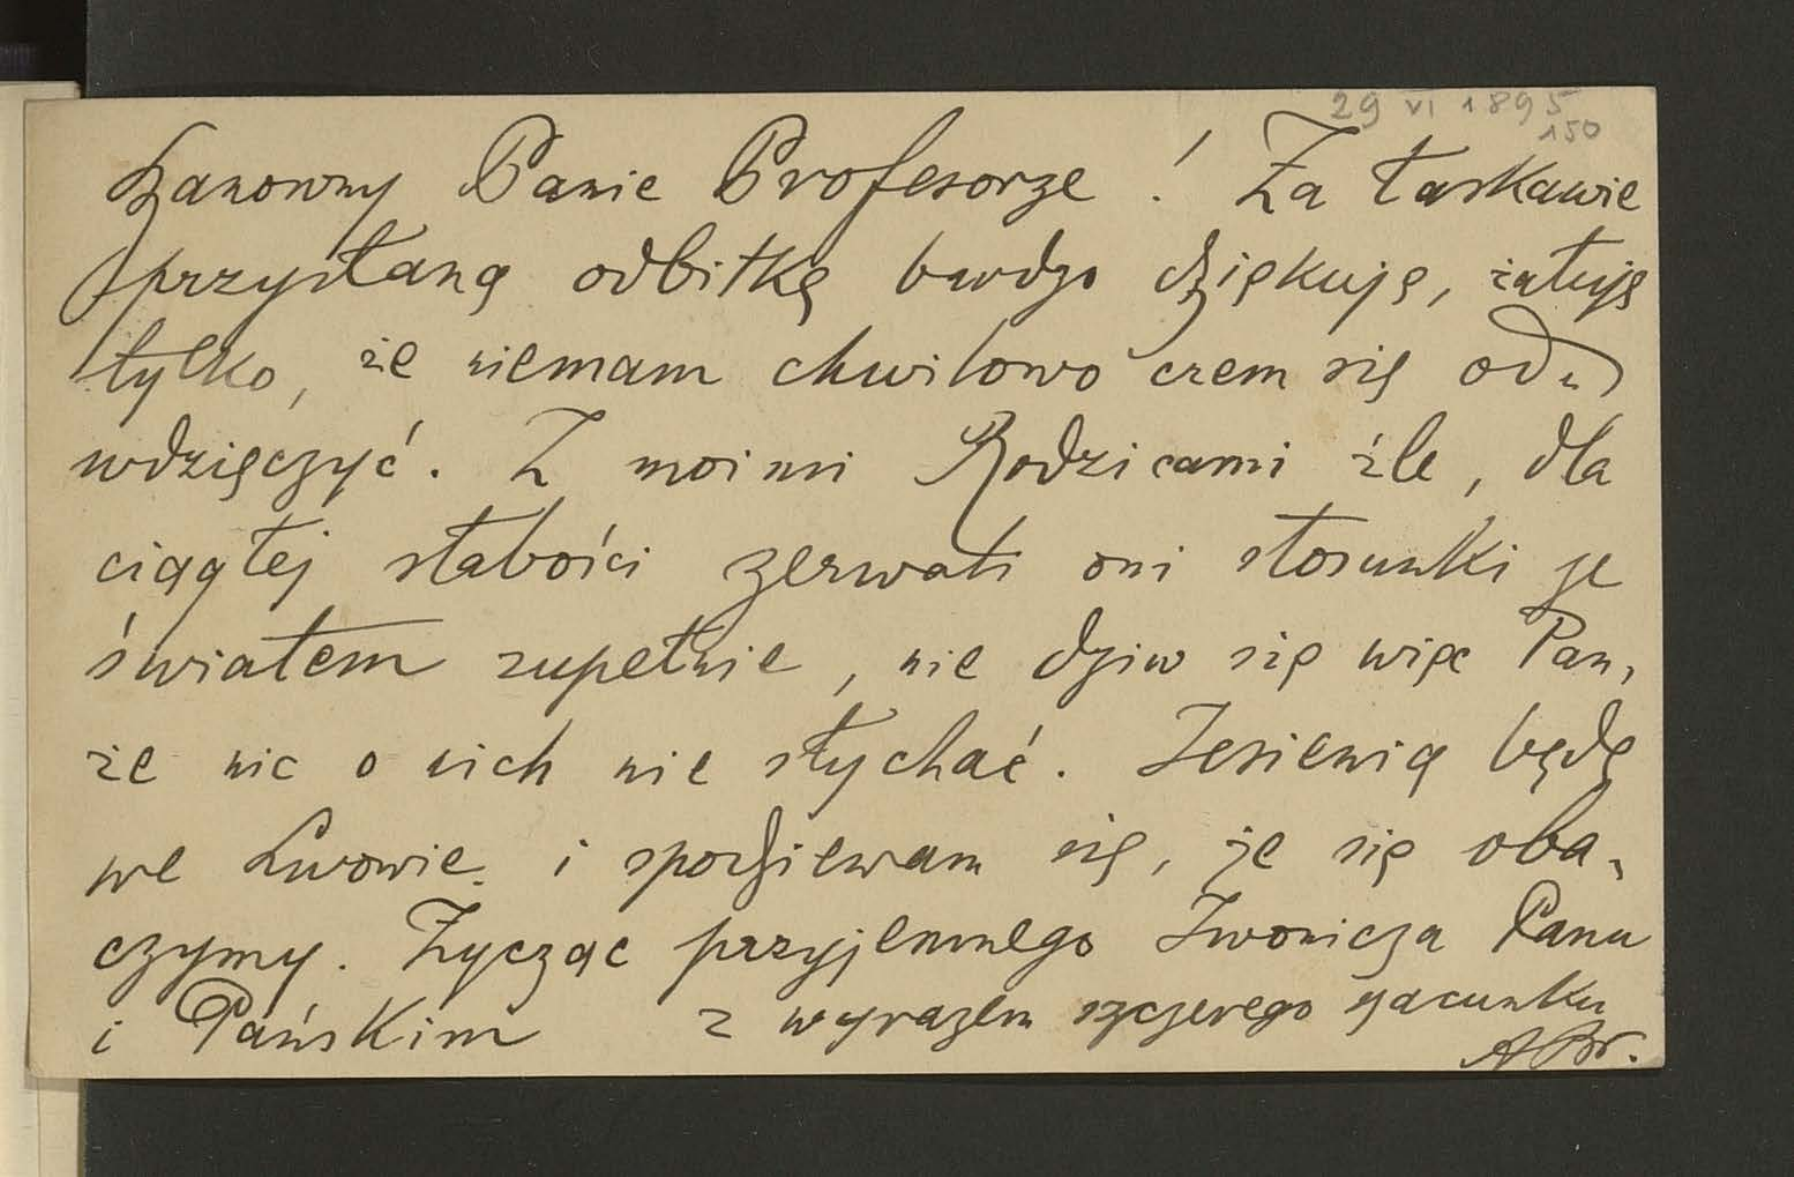 29 VI 1895
150
Szanowny Panie Profesorze! Za łaskawie
przysłaną odbitkę bardzo dziękuję, żałuję
tylko, że niemam chwilowo czem się od-
wdzięczyć. Z moimi Rodzicami źle, dla
ciągłej słabości zerwali oni stosunki ze
światem zupełnie, nie dziw się więc Pan,
że nic o nich nie słychać. Jesienią będę
we Lwowie i spodziewam się, że się oba-
czymy. Życząc przyjemnego Iwonicza Panu
i Pańskim z wyrazem szczerego szacunku
ABr.